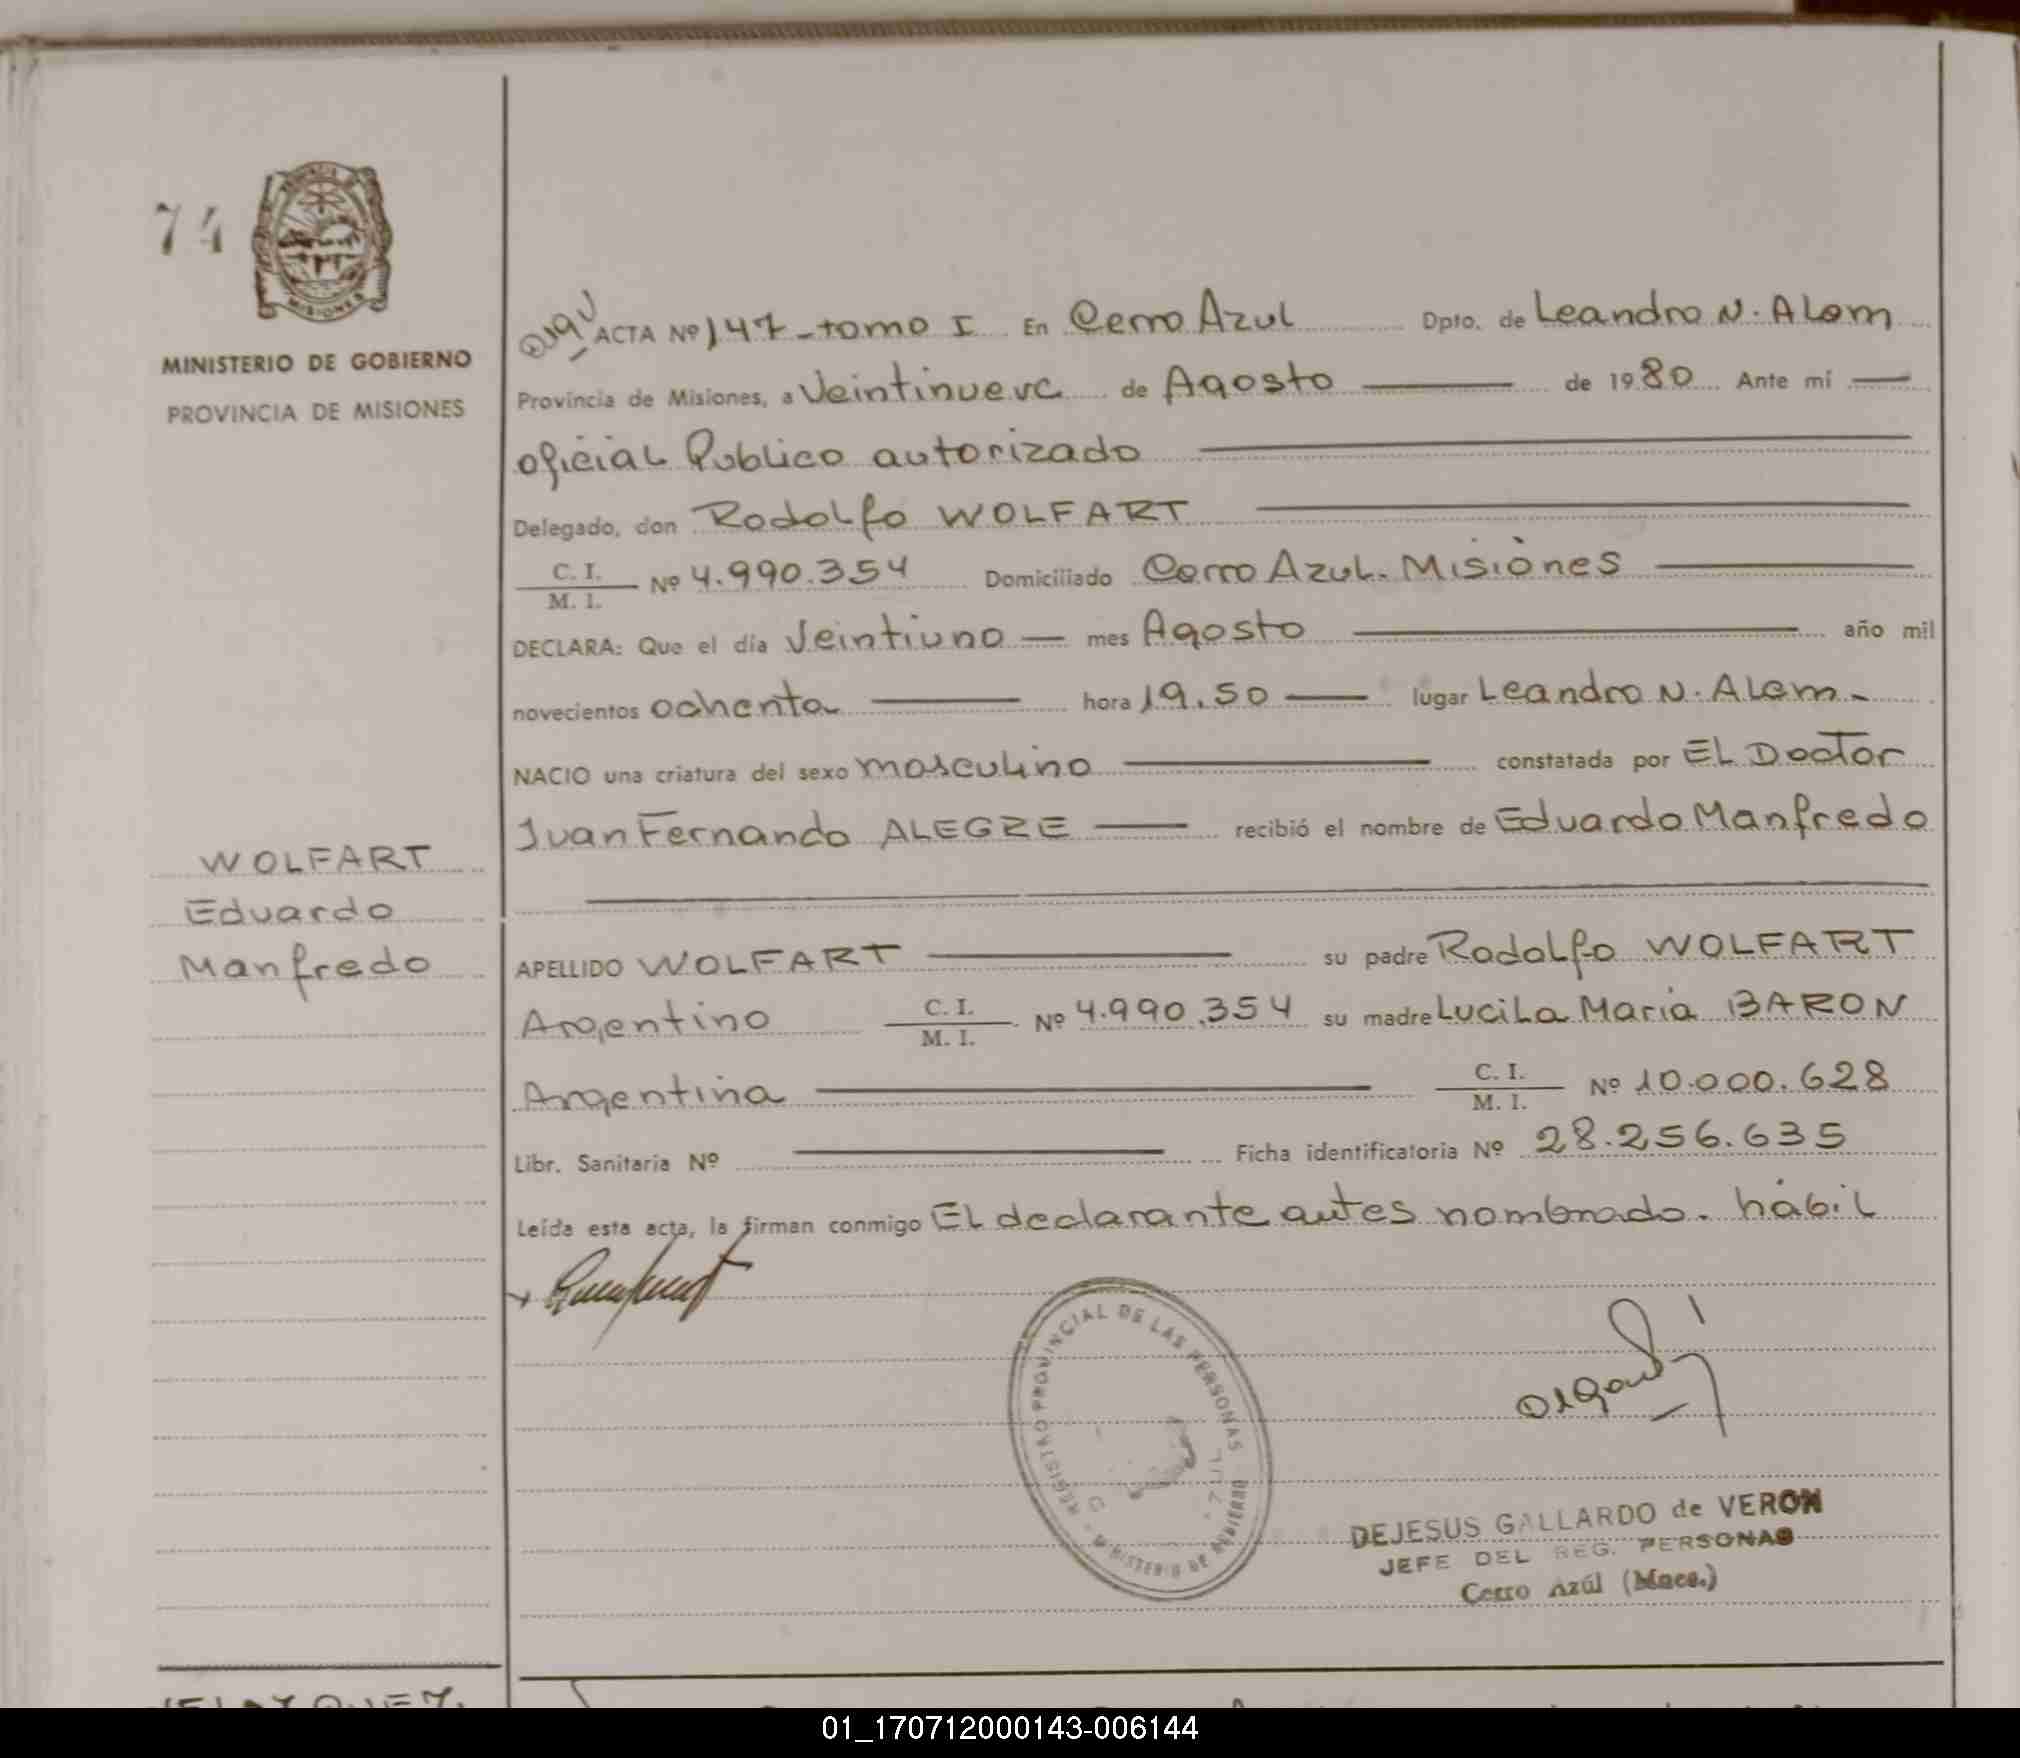 74
MISIONES
MINISTERIO DE GOBIERNO
PROVINCIA DE MISIONES
WOLFART
Eduardo
Manfredo
ACTA Nº 147 - tomo I En Cerro Azul Dpto. de Leandro N. Alem
Provincia de Misiones, a Veintinueve de Agosto de 1980 Ante mí
oficial Publico autorizado
Delegado, don Rodolfo WOLFART
C. I.
M. I. Nº 4.990.354 Domiciliado Cerro Azul. Misiones
DECLARA: Que el día Veintiuno mes Agosto año mil
novecientos ochenta hora 19.50 lugar Leandro N. Alem.
NACIO una criatura del sexo masculino constatada por El Doctor
Juan Fernando ALEGRE recibió el nombre de Eduardo Manfredo
APELLIDO WOLFART su padre Rodolfo WOLFART
Argentino C. I. M. I. Nº 4.990.354 su madre Lucila Maria BARON
Argentina C. I. M. I. Nº 10.000.628
Libr. Sanitaria Nº Ficha identificatoria Nº 28.256.635
Leída esta acta, la firman conmigo El declarante antes nombrado. hábil
REGISTRO PROVINCIAL DE LAS PERSONAS
MINISTERIO DE GOBIERNO
DEJESUS GALLARDO de VERON
JEFE DEL REG. PERSONAS
Cerro Azúl (Mnes.)
01_170712000143-006144